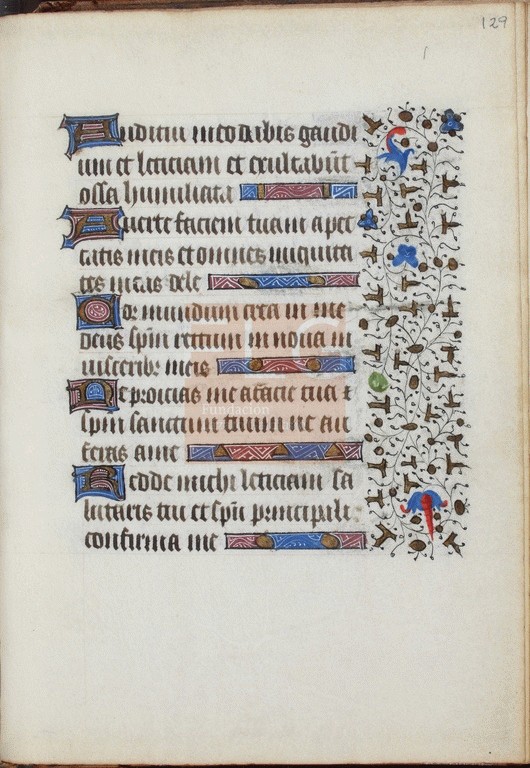 129
Auditui meo dabis gaudi
um et leticiam et exultabūt
ossa humiliata
Auerte faciem tuam a pec
catis meis et omnes iniquita
tes meas dele
Cor mundum crea in me
deus sp̄m rectum in noua in
uisceribꝫ meis
Ne proicias me a facie tua ⁊
sp̄m sanctum tuum ne au
feras a me
Redde michi leticiam sa
lutaris tui et sp̄u principali
confirma me
Fundación